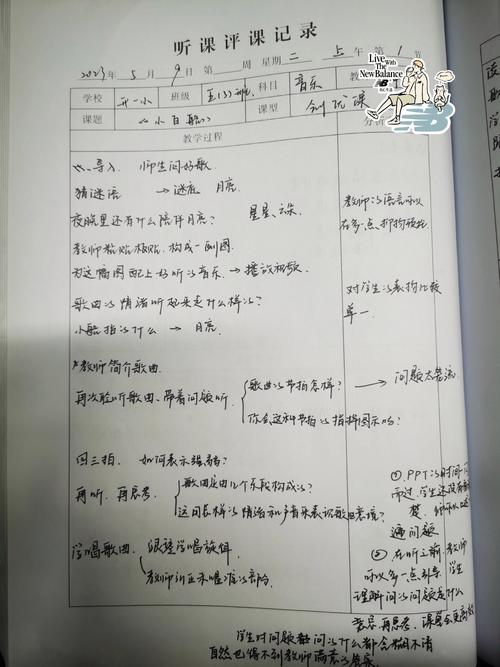 听课评课记录
2023年 5 月 9 日 第 周 星期 二 上 午 第 1 节
Live The
With
New Balance
学校 班级 科目 音乐
课题 《小白船》 课型 创优课
教学过程
一、导入 师生问好歌
猜谜语 → 谜底 月亮
夜晚里还有什么陪伴月亮? 星星、云朵
教师的语言可以
在多一点、抑扬顿挫
教师粘贴板贴,构成一副图
为这幅图配上好听的音乐 → 播放视频
对学生的表扬比较
单一
歌曲的情绪听起来是什么样的?
小船指的什么 → 月亮
教师简介歌曲
再次聆听歌曲、带着问题听 歌曲的节拍怎样? → 问题太笼统
你会这种节拍的指挥图示吗?
四三拍 如何表示强弱?
再听、再思考 歌曲是由几个乐段构成的?
这同怎样的情绪和声音来表现歌曲意境?
① PPT的时间
而过,学生还没有
遍问题
学唱歌曲 跟琴学唱旋律
教师纠正未唱准的部分
② 在听之前,教师
可以多一点引导 学生
理解问的问题是什么
意思 再思考,课堂会更高效
学生对问题都问的什么都含糊不清
自然也得不到教师需要的答案